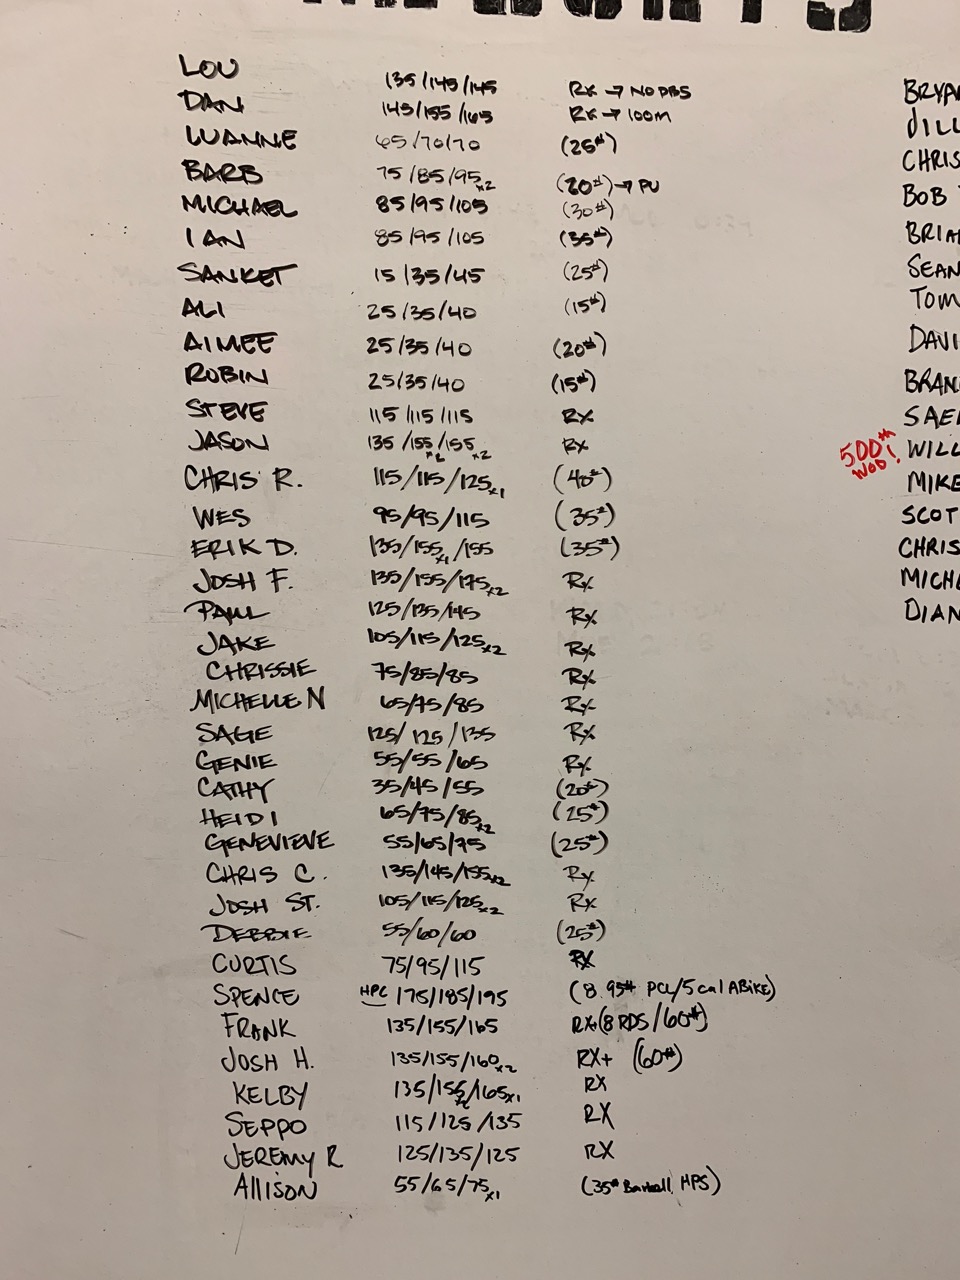 LOU 135/145/145 RX → NO DBS
DAN 145/155/165 RX → 100M
LUANNE 65/70/70 (25#)
BARB 75/85/95x2 (20#) → PU
MICHAEL 85/95/105 (30#)
IAN 85/95/105 (35#)
SANKET 15/35/45 (25#)
ALI 25/35/40 (15#)
AIMEE 25/35/40 (20#)
ROBIN 25/35/40 (15#)
STEVE 115/115/115 RX
JASON 135/155x2/155x2 RX
CHRIS R. 115/115/125x1 (40#)
WES 95/95/115 (35#)
ERIK D. 135/155x1/155 (35#)
JOSH F. 135/155/175x2 RX
PAUL 125/135/145 RX
JAKE 105/115/125x2 RX
CHRISSIE 75/85/85 RX
MICHELLE N 65/75/85 RX
SAGE 125/125/135 RX
GENIE 55/55/65 RX
CATHY 35/45/55 (20#)
HEIDI 65/75/85x2 (25#)
GENEVIEVE 55/65/75 (25#)
CHRIS C. 135/145/155x2 RX
JOSH ST. 105/115/125x2 RX
DEBBIE 55/60/60 (25#)
CURTIS 75/95/115 RX
SPENCE HPC 175/185/195 (8. 95# PCL/5 cal ABIKE)
FRANK 135/155/165 RX+(8 RDS/60#)
JOSH H. 135/155/160x2 RX+ (60#)
KELBY 135/155/165x1 RX
SEPPO 115/125/135 RX
JEREMY R 125/135/125 RX
Allison 55/65/75x1 (35# Barbell, HPS)
BRYA
JILL
CHRIS
BOB
BRIA
SEAN
TOM
DAVI
BRAN
SAE
500th WOD! WILL
MIKE
SCOT
CHRIS
MICH
DIAN